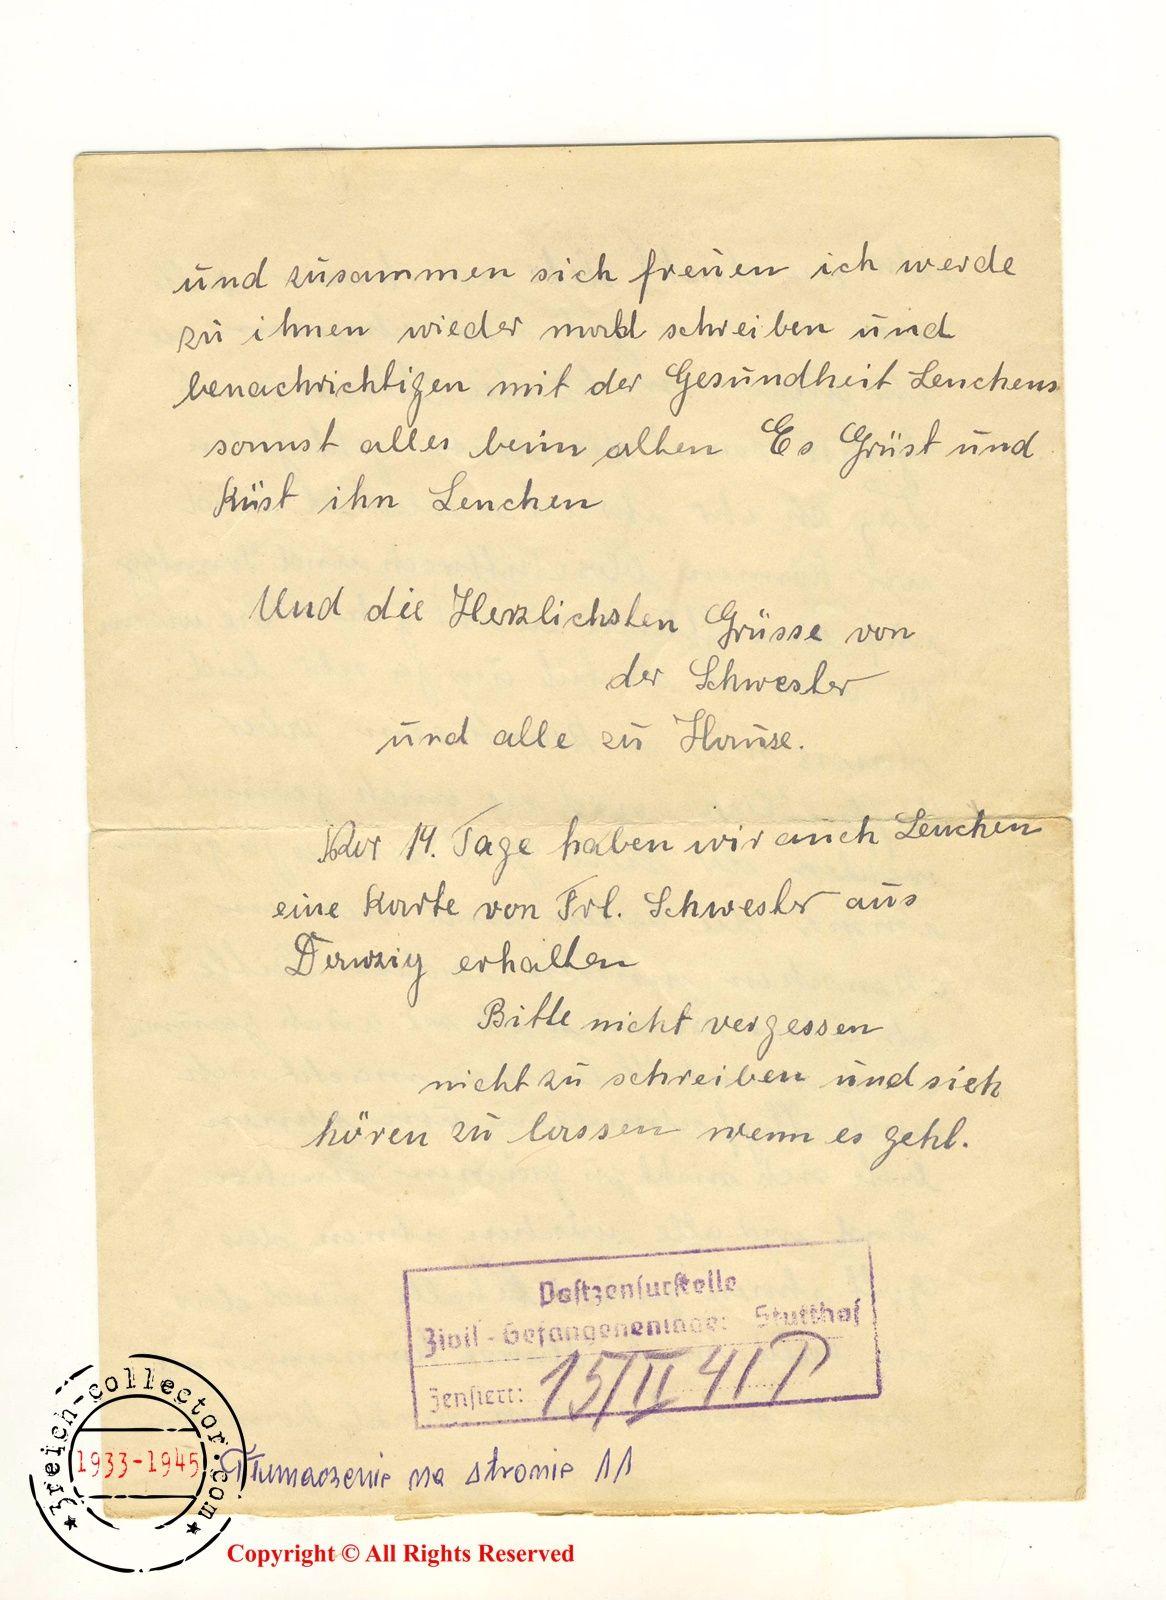 und zusammen sich freuen ich werde
zu ihnen wieder mahl schreiben und
benachrichtigen mit der Gesundheit Lenchens
sonnst alles beim alten Es Grüst und
Küst ihn Lenchen
Und die Herzlichsten Grüsse von
der Schwester
und alle zu Hause.
Vor 14. Tage haben wir auch Lenchen
eine Karte von Frl. Schwester aus
Danzig erhalten
Bitte nicht vergessen
nicht zu schreiben und sich
hören zu lassen wenn es gehl.
Postzensurstelle
Zivil-Gefangenenlager Stutthof
Zensiert: 15/II 41 P
Tłumaczenie na stronie 11
3reich-collector.com
1933-1945
Copyright © All Rights Reserved